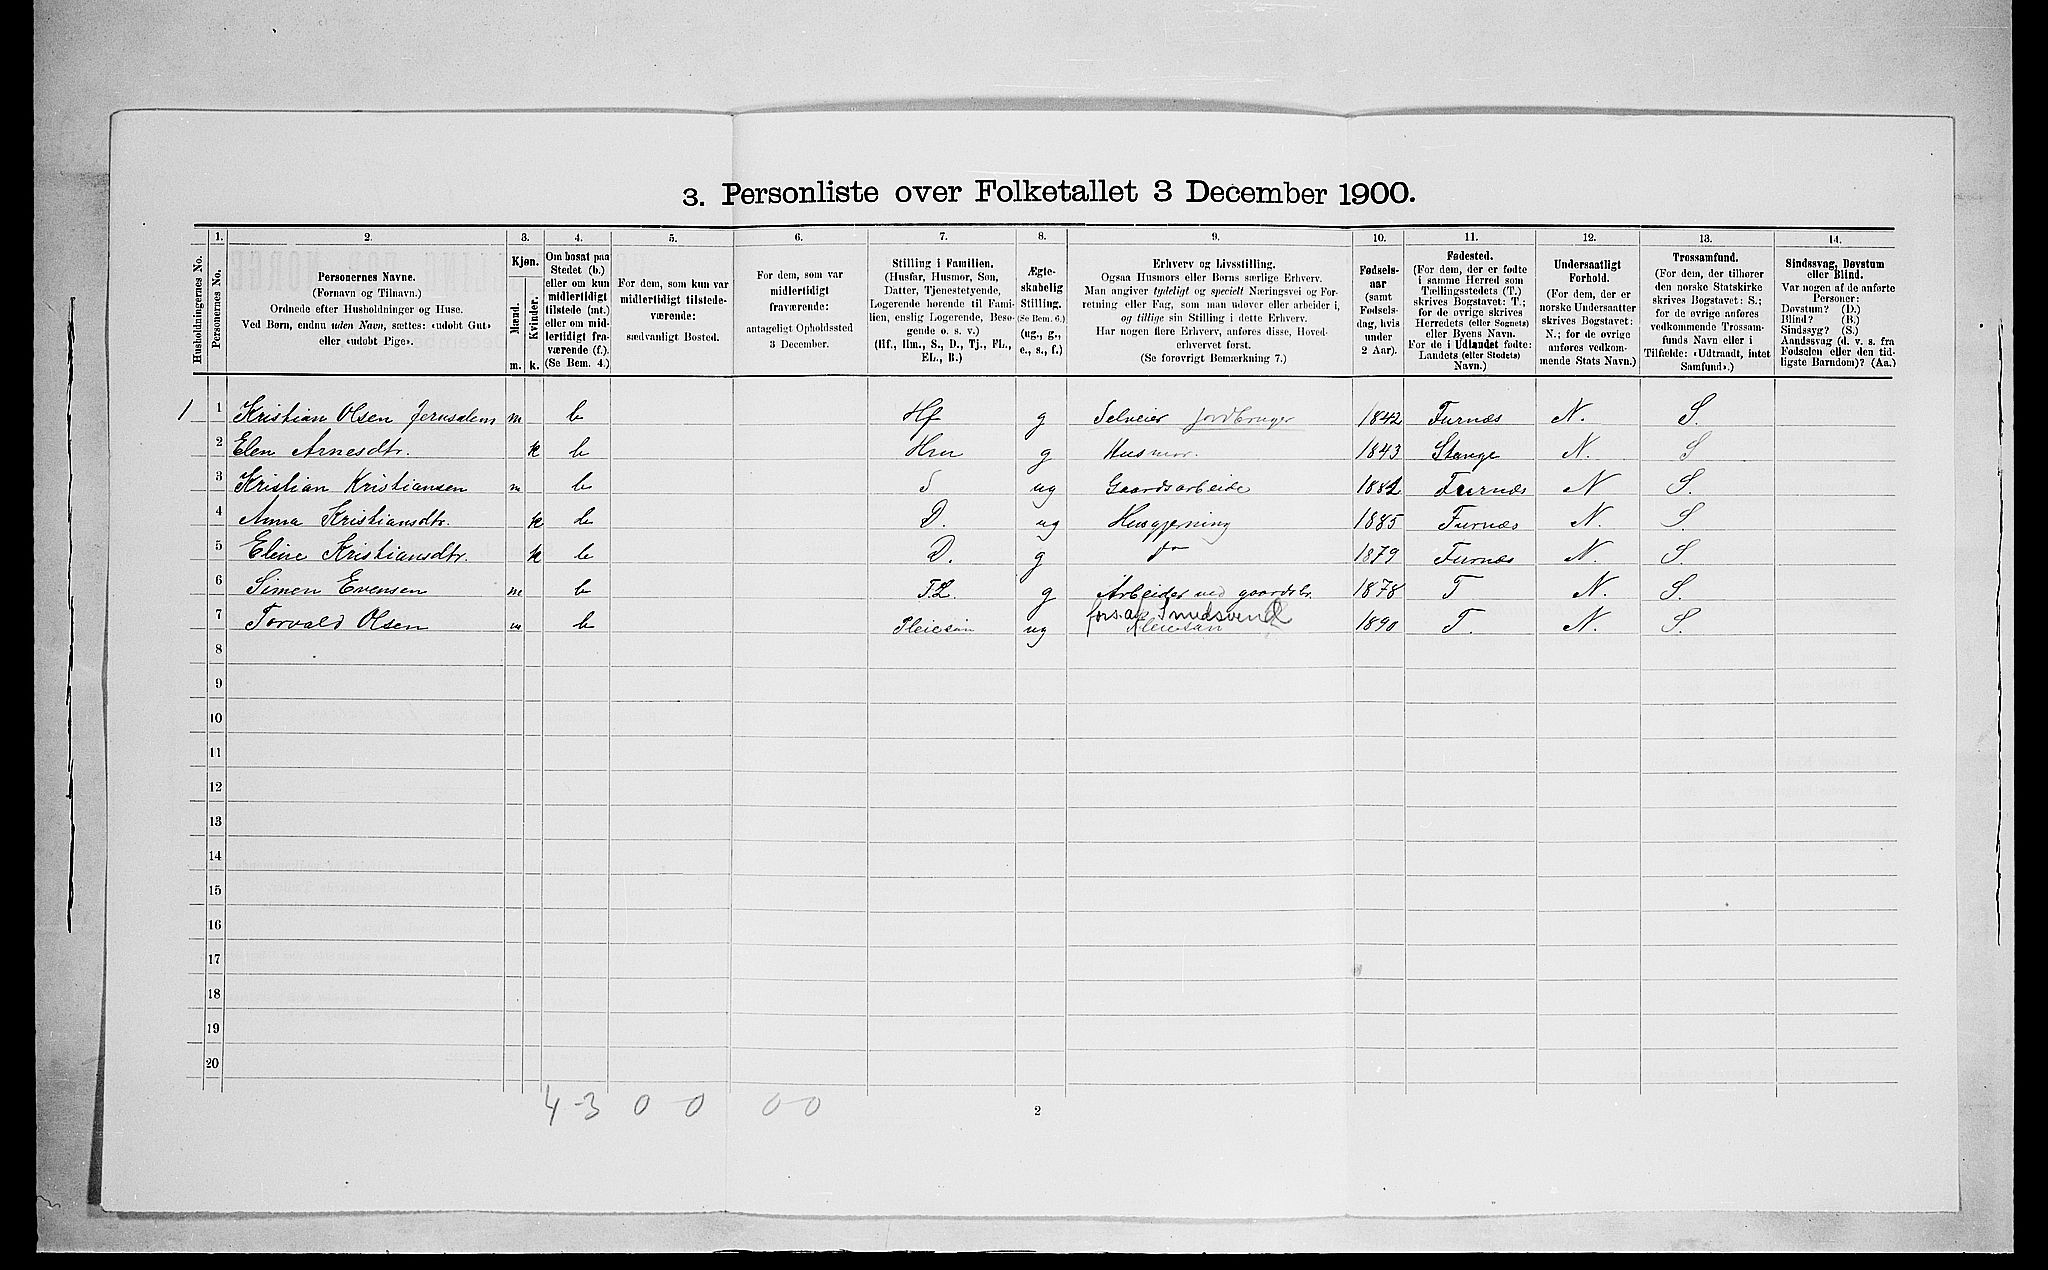 3. Personliste over Folketallet 3 December 1900.
1. 2. 3. 4. 5. 6. 7. 8. 9. 10. 11. 12. 13. 14.
Husholdningernes No.
Personernes No.
Personernes Navne.
(Fornavn og Tilnavn.)
Ordnede efter Husholdninger og Huse.
Ved Børn, endnu uden Navn, sættes: «udobt Gut»
eller «udobt Pige».
Kjøn.
Mænd.
Kvinder.
m. k.
Om bosat paa
Stedet (b.)
eller om kun
midlertidigt
tilstede (mt.)
eller om mid-
lertidigt fra-
værende (f.).
(Se Bem. 4.)
For dem, som kun var
midlertidigt tilstede-
værende:
sædvanligt Bosted.
For dem, som var
midlertidigt
fraværende:
antageligt Opholdssted
3 December.
Stilling i Familien.
(Husfar, Husmor, Søn,
Datter, Tjenestetyende,
Logerende hørende til Fami-
lien, enslig Logerende, Besø-
gende o. s. v.)
(Hf., Hm., S., D., Tj., FL.,
EL., B.)
Ægte-
skabelig
Stilling.
(Se Bem. 6.)
(ug., g.,
e., s., f.)
Erhverv og Livsstilling.
Ogsaa Husmors eller Børns særlige Erhverv.
Man angiver tydeligt og specielt Næringsvei og For-
retning eller Fag, som man udøver eller arbeider i,
og tillige sin Stilling i dette Erhverv.
Har nogen flere Erhverv, anføres disse, Hoved-
erhvervet først.
(Se forøvrigt Bemærkning 7.)
Fødsels-
aar
(samt
Fødsels-
dag, hvis
under
2 Aar).
Fødested.
(For dem, der er fødte
i samme Herred som
Tællingsstedets (T.)
skrives Bogstavet: T.;
for de øvrige skrives
Herredets (eller Sognets)
eller Byens Navn.
For de i Udlandet fødte:
Landets (eller Stedets)
Navn.)
Undersaatligt
Forhold.
(For dem, der er
norske Undersaatter
skrives Bogstavet:
N.; for de øvrige
anføres vedkom-
mende Stats Navn.)
Trossamfund.
(For dem, der tilhører
den norske Statskirke
skrives Bogstavet: S.;
for de øvrige anføres
vedkommende Trossam-
funds Navn eller i
Tilfælde: «Udtraadt, intet
Samfund».)
Sindssvag, Døvstum
eller Blind.
Var nogen af de anførte
Personer:
Døvstum? (D.)
Blind? (B.)
Sindssyg? (S.)
Aandssvag (d. v. s. fra
Fødselen eller den tid-
ligste Barndom)? (Aa.)
1 1 Kristian Olsen Jerusalem m b Hf g Selveier jordbruger 1842 Furnæs N. S.
2 Elen Arnesdtr. k b Hm g Husmor. 1843 Stange N. S
3 Kristian Kristiansen m b S ug Gaardsarbeide 1882 Furnæs N S.
4 Anna Kristiansdtr. k b D. ug Husgjerning 1885 Furnæs N. S
5 Eline Kristiansdtr. k b D. g do 1879 Furnæs N. S.
6 Simen Evensen m b FL. g Arbeider ved gaardsbr. 1878 T N. S.
7 Torvald Olsen m b Pleiesøn ug fors. af Smedsvend Pleiesøn 1890 T. N. S.
8
9
10
11
12
13
14
15
16
17
18
19
20
4-3 0 0 0-0
2